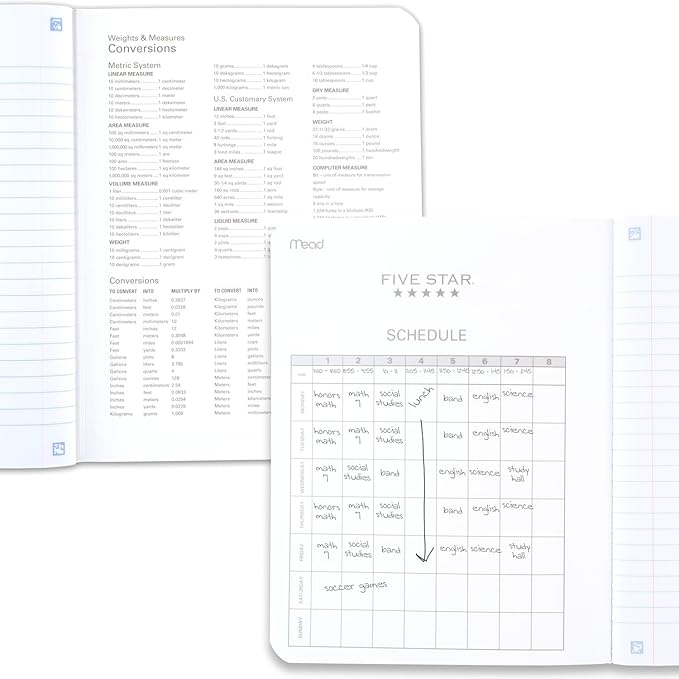 Weights & Measures
Conversions
Metric System
LINEAR MEASURE
10 millimeters 1 centimeter
10 centimeters 1 decimeter
10 decimeters 1 meter
10 meters 1 dekameter
10 dekameters 1 hectometer
10 hectometers 1 kilometer
AREA MEASURE
100 sq millimeters 1 sq centimeter
10,000 sq centimeters 1 sq meter
1,000,000 sq millimeters 1 sq meter
100 sq meters 1 are
100 ares 1 hectare
100 hectares 1 sq kilometer
1,000,000 sq meters 1 sq kilometer
VOLUME MEASURE
1 liter 0.001 cubic meter
10 milliliters 1 centiliter
10 centiliters 1 deciliter
10 deciliters 1 liter
10 liters 1 dekaliter
10 dekaliters 1 hectoliter
10 hectoliters 1 kiloliter
WEIGHT
10 milligrams 1 centigram
10 centigrams 1 decigram
10 decigrams 1 gram
10 grams 1 dekagram
10 dekagrams 1 hectogram
10 hectograms 1 kilogram
1,000 kilograms 1 metric ton
U.S. Customary System
LINEAR MEASURE
12 inches 1 foot
3 feet 1 yard
5-1/2 yards 1 rod
40 rods 1 furlong
8 furlongs 1 mile
3 land miles 1 league
AREA MEASURE
144 sq inches 1 sq foot
9 sq feet 1 sq yard
30-1/4 sq yards 1 sq rod
160 sq rods 1 acre
640 acres 1 sq mile
1 sq mile 1 section
36 sections 1 township
LIQUID MEASURE
4 tablespoons 1/4 cup
5 1/3 tablespoons 1/3 cup
16 tablespoons 1 cup
DRY MEASURE
2 pints 1 quart
8 quarts 1 peck
4 pecks 1 bushel
WEIGHT
27-11/32 grains 1 dram
16 drams 1 ounce
16 ounces 1 pound
100 pounds 1 hundredweight
20 hundredweights 1 ton
COMPUTER MEASURE
Bit - unit of measure for transmission
speed
Byte - unit of measure for storage
capacity
8 bits in a byte
Conversions
TO CONVERT INTO MULTIPLY BY TO CONVERT INTO
Centimeters inches 0.3937 Kilograms ounces
Centimeters feet Kilograms pounds
Centimeters meters 0.01 Kilometers feet
Centimeters millimeters 10 Kilometers meters
Feet inches 12 Kilometers miles
Feet meters 0.3048 Kilometers yards
Feet miles 0.0001894 Liters cups
Feet yards 0.3333 Liters pints
Gallons pints 8 Liters gallons
Gallons liters 3.785 Liters milliliters
Gallons quarts 4 Liters quarts
Gallons ounces 128 Meters centimeters
Inches centimeters 2.54 Meters feet
Inches feet 0.0833 Meters inches
Inches meters 0.0254 Meters kilometers
Inches yards 0.0278 Meters miles
Kilograms grams 1,000 Meters yards
Mead
FIVE STAR
SCHEDULE
1 2 3 4 5 6 7 8
MONDAY honors math math 7 social studies lunch band english science
TUESDAY honors math math 7 social studies band english science
WEDNESDAY math 7 social studies band english science study hall
THURSDAY honors math math 7 social studies band english science
FRIDAY math 7 social studies band english science study hall
SATURDAY soccer games
SUNDAY